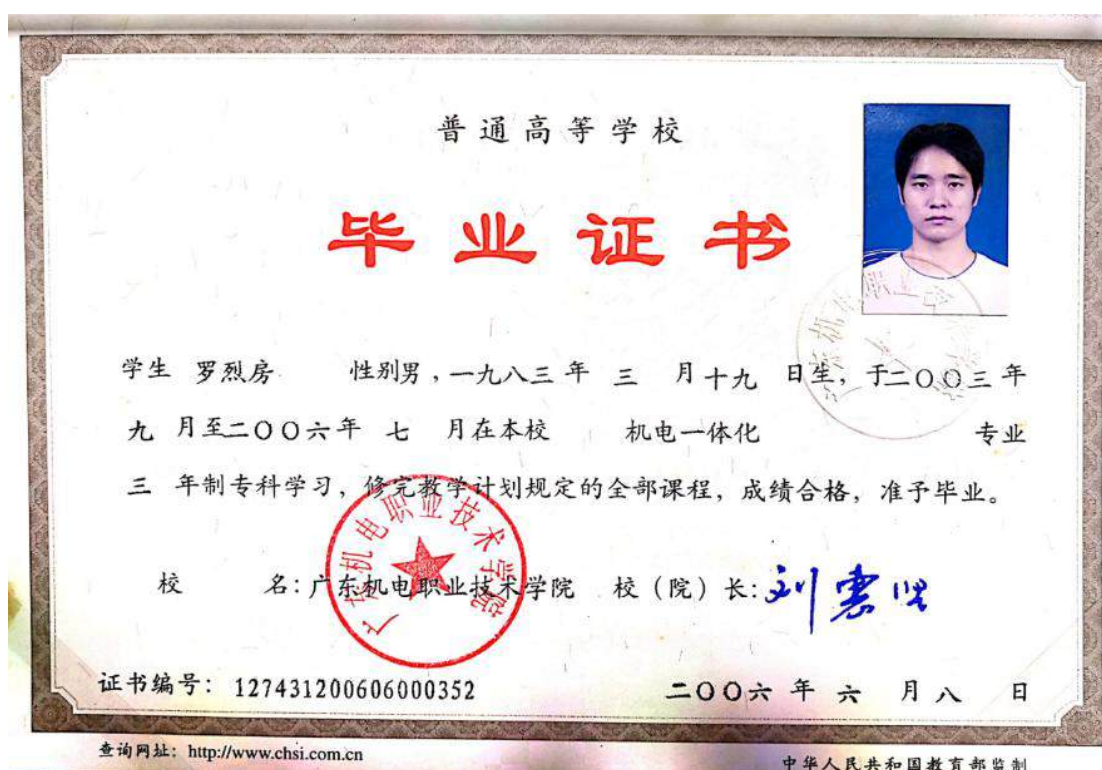 普通高等学校
毕业证书
学生 罗烈房 性别男,一九八三年 三 月十九 日生,于二〇〇三年
九 月至二〇〇六年 七 月在本校 机电一体化 专业
三 年制专科学习,修完教学计划规定的全部课程,成绩合格,准予毕业。
广东机电职业技术学院
校 名:广东机电职业技术学院 校(院)长:
证书编号: 127431200606000352 二〇〇六 年 六 月 八 日
查询网址: http://www.chsi.com.cn 中华人民共和国教育部监制